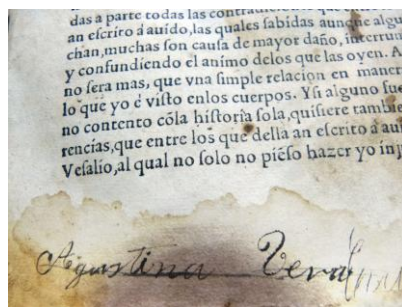 das a parte todas las contradiciones que
an escrito a auido, las quales sabidas aunque algu
chan, muchas son causa de mayor daño, interrum
y confundiendo el animo delos que las oyen. A
no sera mas, que vna simple relacion en maner
lo que yo é visto enlos cuerpos. Ysi alguno fue
no contento cõla historia sola, quisiere tambie
rencias, que entre los que della an escrito a aui
Vesalio, al qual no solo no piẽso hazer yo inj
Agustina Vera